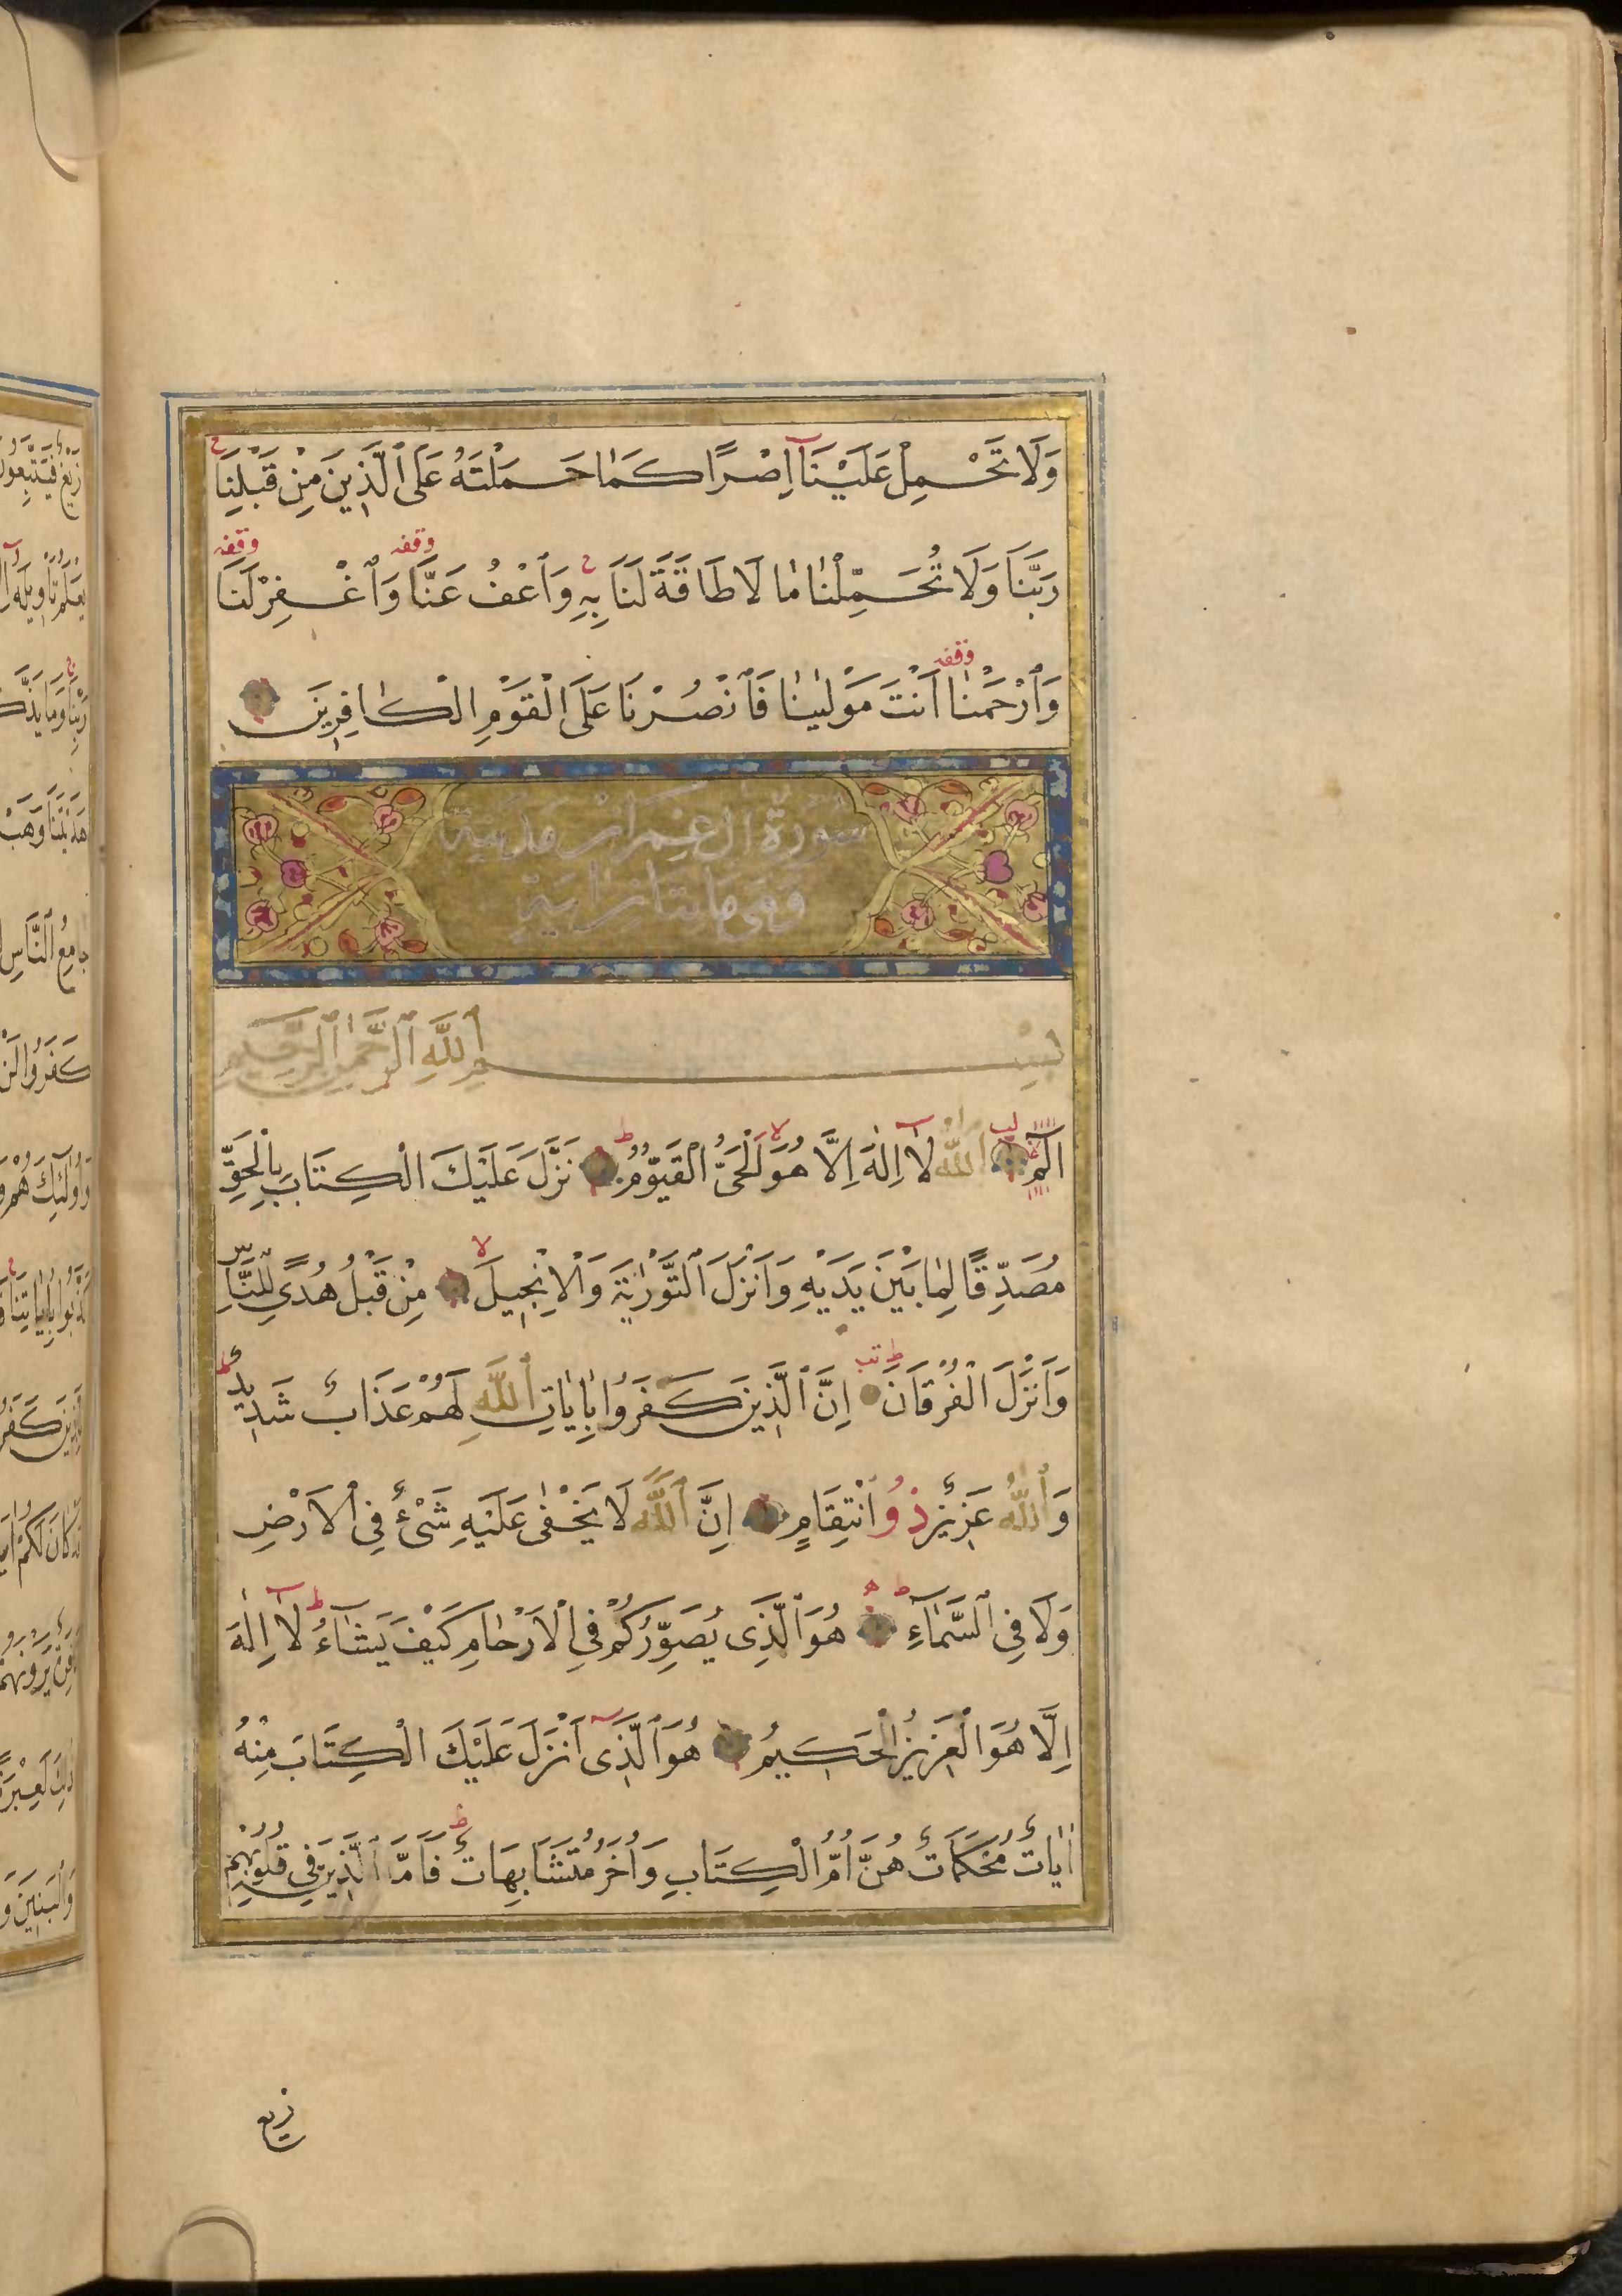 وَلَا تَحْمِلْ عَلَيْنَآ اِصْرًا كَمٰا حَمَلْتَهُ عَلَى ٱلَّذِينَ مِنْ قَبْلِنَا ج
رَبَّنَا وَلَا تُحَمِّلْنٰا مٰا لَا طَاقَةَ لَنَا بِهِ ج وَٱعْفُ عَنَّا وقفه وَٱغْفِرْ لَنَا وقفه
وَٱرْحَمْنٰا وقفه اَنْتَ مَوْلٰينٰا فَٱنْصُرْنَا عَلَى الْقَوْمِ الْكٰافِرِينَ
سُورَةُ اٰلِ عِمْرَان مدنية
وهى مايتا اية
بِسْمِ ٱللَّهِ ٱلرَّحْمٰنِ ٱلرَّحِيمِ
الٓمٓ لب ٱللّٰهُ لَٓا اِلٰهَ اِلَّا هُوَ لا الْحَىُّ الْقَيُّومُ ط نَزَّلَ عَلَيْكَ الْكِتَابَ بِالْحَقِّ
مُصَدِّقًا لِمٰا بَيْنَ يَدَيْهِ وَاَنْزَلَ ٱلتَّوْرٰيةَ وَالْاِنْجِيلَ لا مِنْ قَبْلُ هُدًى لِلنَّاسِ
وَاَنْزَلَ الْفُرْقَانَ ط تب اِنَّ ٱلَّذِينَ كَفَرُوا بِاٰيٰاتِ ٱللَّهِ لَهُمْ عَذَابٌ شَدِيدٌ ط
وَٱللّٰهُ عَزِيزٌ ذُو ٱنْتِقَامٍ اِنَّ ٱللَّهَ لَا يَخْفٰى عَلَيْهِ شَىْءٌ فِى الْاَرْضِ
وَلَا فِى ٱلسَّمٰاءِ ط ه هُوَ ٱلَّذِى يُصَوِّرُكُمْ فِى الْاَرْحٰامِ كَيْفَ يَشٰاءُ ط لَٓا اِلٰهَ
اِلَّا هُوَ الْعَزِيزُ الْحَكِيمُ هُوَ ٱلَّذِىٓ اَنْزَلَ عَلَيْكَ الْكِتَابَ مِنْهُ
اٰيٰاتٌ مُحْكَمَاتٌ هُنَّ اُمُّ الْكِتَابِ وَاُخَرُ مُتَشَابِهَاتٌ ط فَاَمَّا ٱلَّذِينَ فِى قُلُوبِهِمْ
زيغ